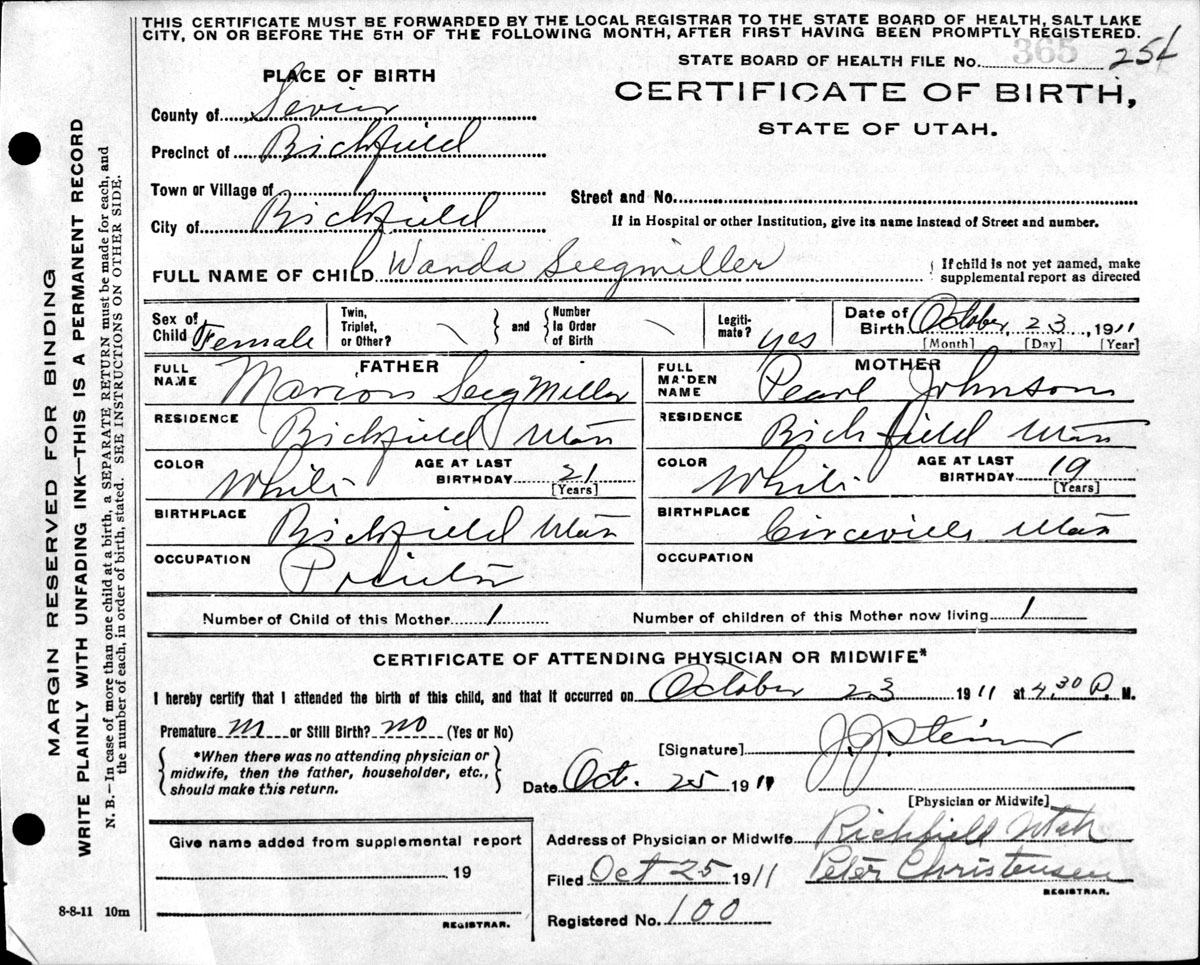 THIS CERTIFICATE MUST BE FORWARDED BY THE LOCAL REGISTRAR TO THE STATE BOARD OF HEALTH, SALT LAKE
CITY, ON OR BEFORE THE 5TH OF THE FOLLOWING MONTH, AFTER FIRST HAVING BEEN PROMPTLY REGISTERED.
STATE BOARD OF HEALTH FILE NO. 365 254
PLACE OF BIRTH
CERTIFICATE OF BIRTH,
STATE OF UTAH.
County of Sevier
Precinct of Richfield
Town or Village of
Street and No.
City of Richfield
If in Hospital or other Institution, give its name instead of Street and number.
FULL NAME OF CHILD Wanda Seegmiller { If child is not yet named, make
supplemental report as directed
Sex of Child Female
Twin, Triplet, or Other? \ } and { Number In Order of Birth \
Legiti-mate? yes
Date of Birth October 23, 1911
[Month] [Day] [Year]
FATHER
FULL NAME Marion SeegMiller
MOTHER
FULL MAIDEN NAME Pearl Johnson
RESIDENCE Richfield Utah
RESIDENCE Richfield Utah
COLOR White AGE AT LAST BIRTHDAY 21 [Years]
COLOR White AGE AT LAST BIRTHDAY 19 [Years]
BIRTHPLACE Richfield Utah
BIRTHPLACE Circeville Utah
OCCUPATION Printer
OCCUPATION
Number of Child of this Mother 1
Number of children of this Mother now living 1
CERTIFICATE OF ATTENDING PHYSICIAN OR MIDWIFE*
I hereby certify that I attended the birth of this child, and that it occurred on October 23 1911 at 4.30 P. M.
Premature or Still Birth? no (Yes or No)
{ *When there was no attending physician or
midwife, then the father, householder, etc.,
should make this return. }
[Signature] J.J. Steiner
Date Oct. 25 1911
[Physician or Midwife]
Address of Physician or Midwife Richfield Utah
Filed Oct 25 1911 Peter Christensen
REGISTRAR.
Registered No. 100
Give name added from supplemental report
19
REGISTRAR.
8-8-11 10m
MARGIN RESERVED FOR BINDING
WRITE PLAINLY WITH UNFADING INK—THIS IS A PERMANENT RECORD
N. B.—In case of more than one child at a birth, a SEPARATE RETURN must be made for each, and
the number of each, in order of birth, stated. SEE INSTRUCTIONS ON OTHER SIDE.